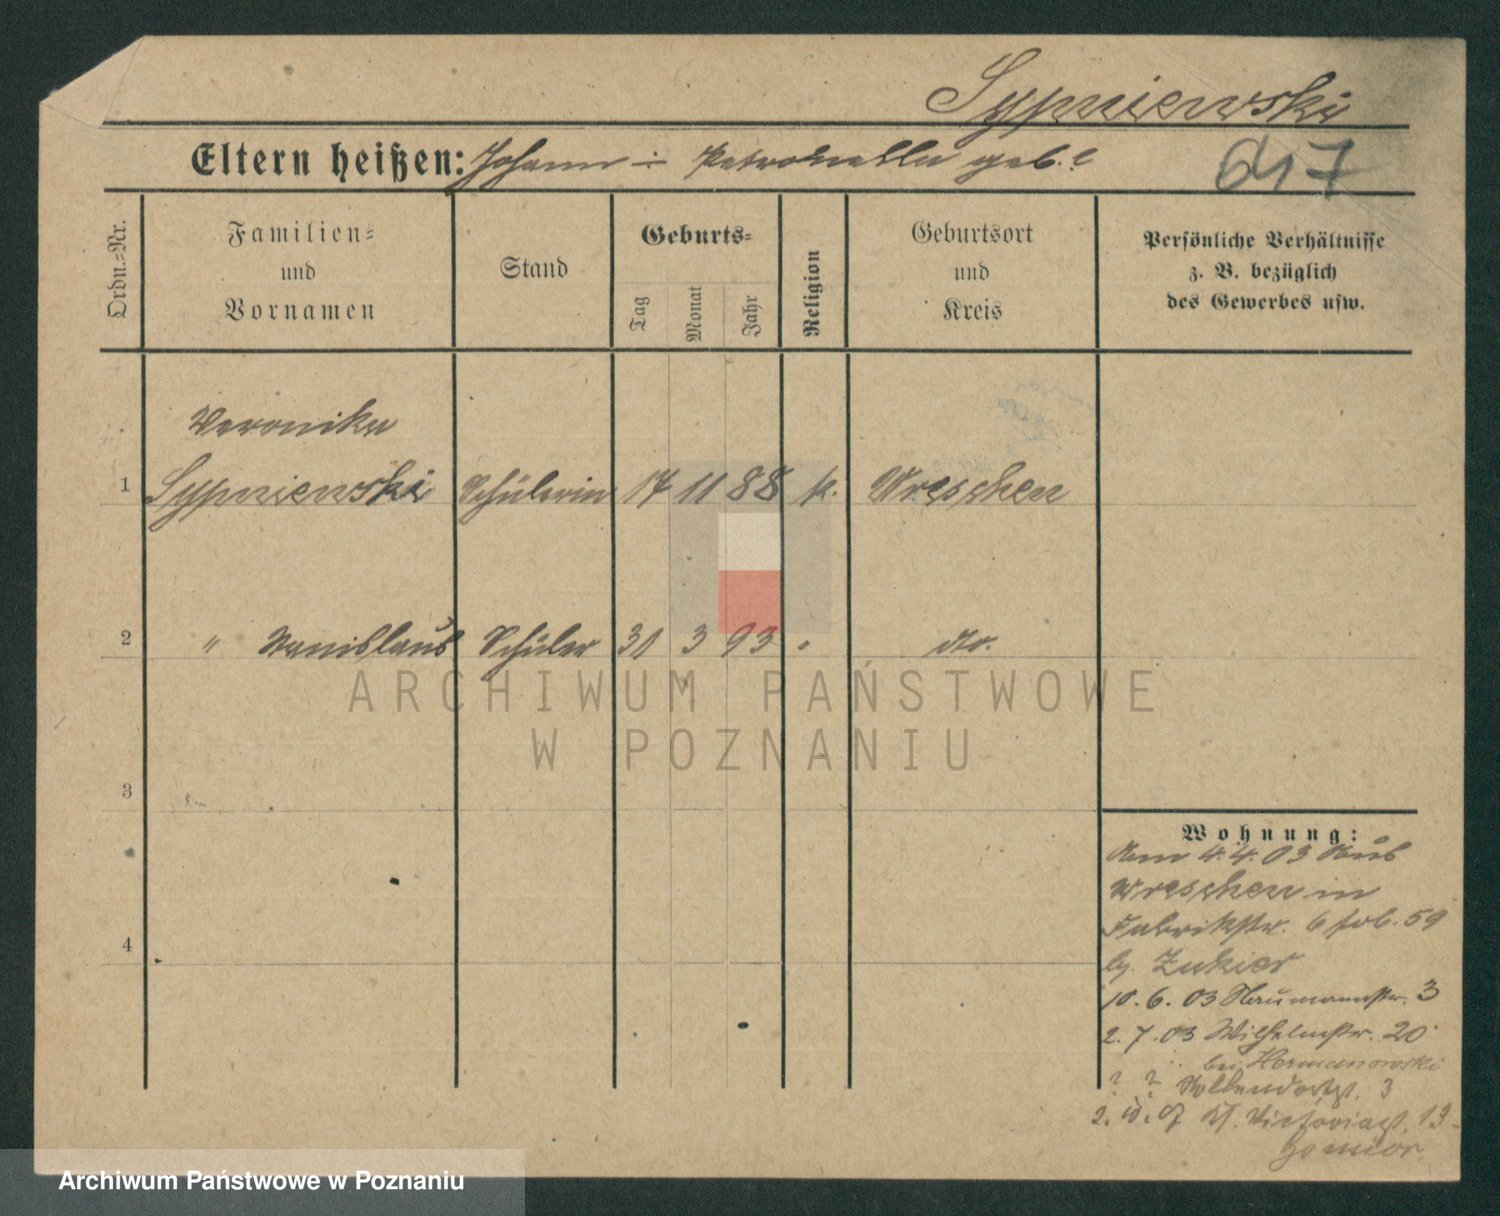 Sypniewski
Eltern heißen: Johann – Petronella geb. ?
617
Ordn.=Nr.
Familien=
und
Vornamen
Stand
Geburts=
Tag
Monat
Jahr
Religion
Geburtsort
und
Kreis
Persönliche Verhältnisse
z. B. bezüglich
des Gewerbes usw.
Veronika
1 Sypniewski Schülerin 17 11 88 k. Wreschen
2 " Stanislaus Schüler 31 3 93 " dto.
3
4
Wohnung:
Am 4.4.03 Aus
Wreschen in
Fabrikstr. 6 59
by. Zukier
10.6.03 Naumannstr. 3
2.7.03 Wilhelmstr. 20
bei Hermanowski
? ? 3
2. 07 Victoriast. 13
ARCHIWUM PAŃSTWOWE
W POZNANIU
Archiwum Państwowe w Poznaniu